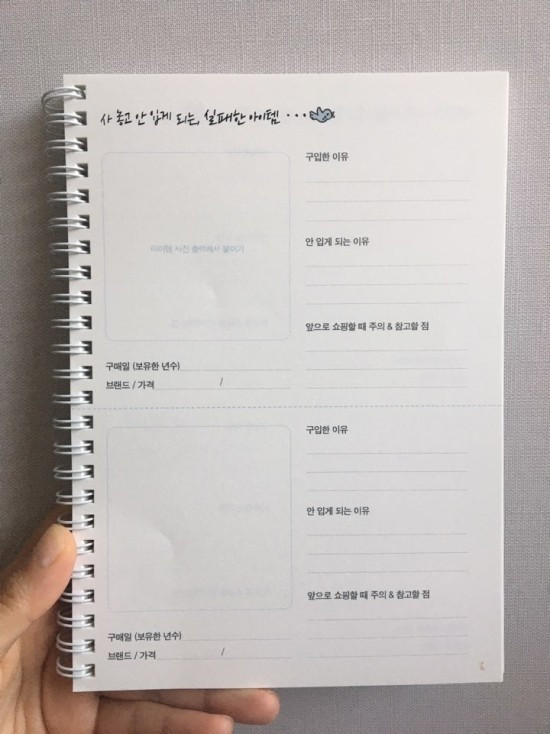 사 놓고 안 입게 되는, 실패한 아이템 ...
구입한 이유
아이템 사진 출력해서 붙이기
안 입게 되는 이유
앞으로 쇼핑할 때 주의 & 참고할 점
구매일 (보유한 년수)
브랜드 / 가격 /
구입한 이유
안 입게 되는 이유
앞으로 쇼핑할 때 주의 & 참고할 점
구매일 (보유한 년수)
브랜드 / 가격 /